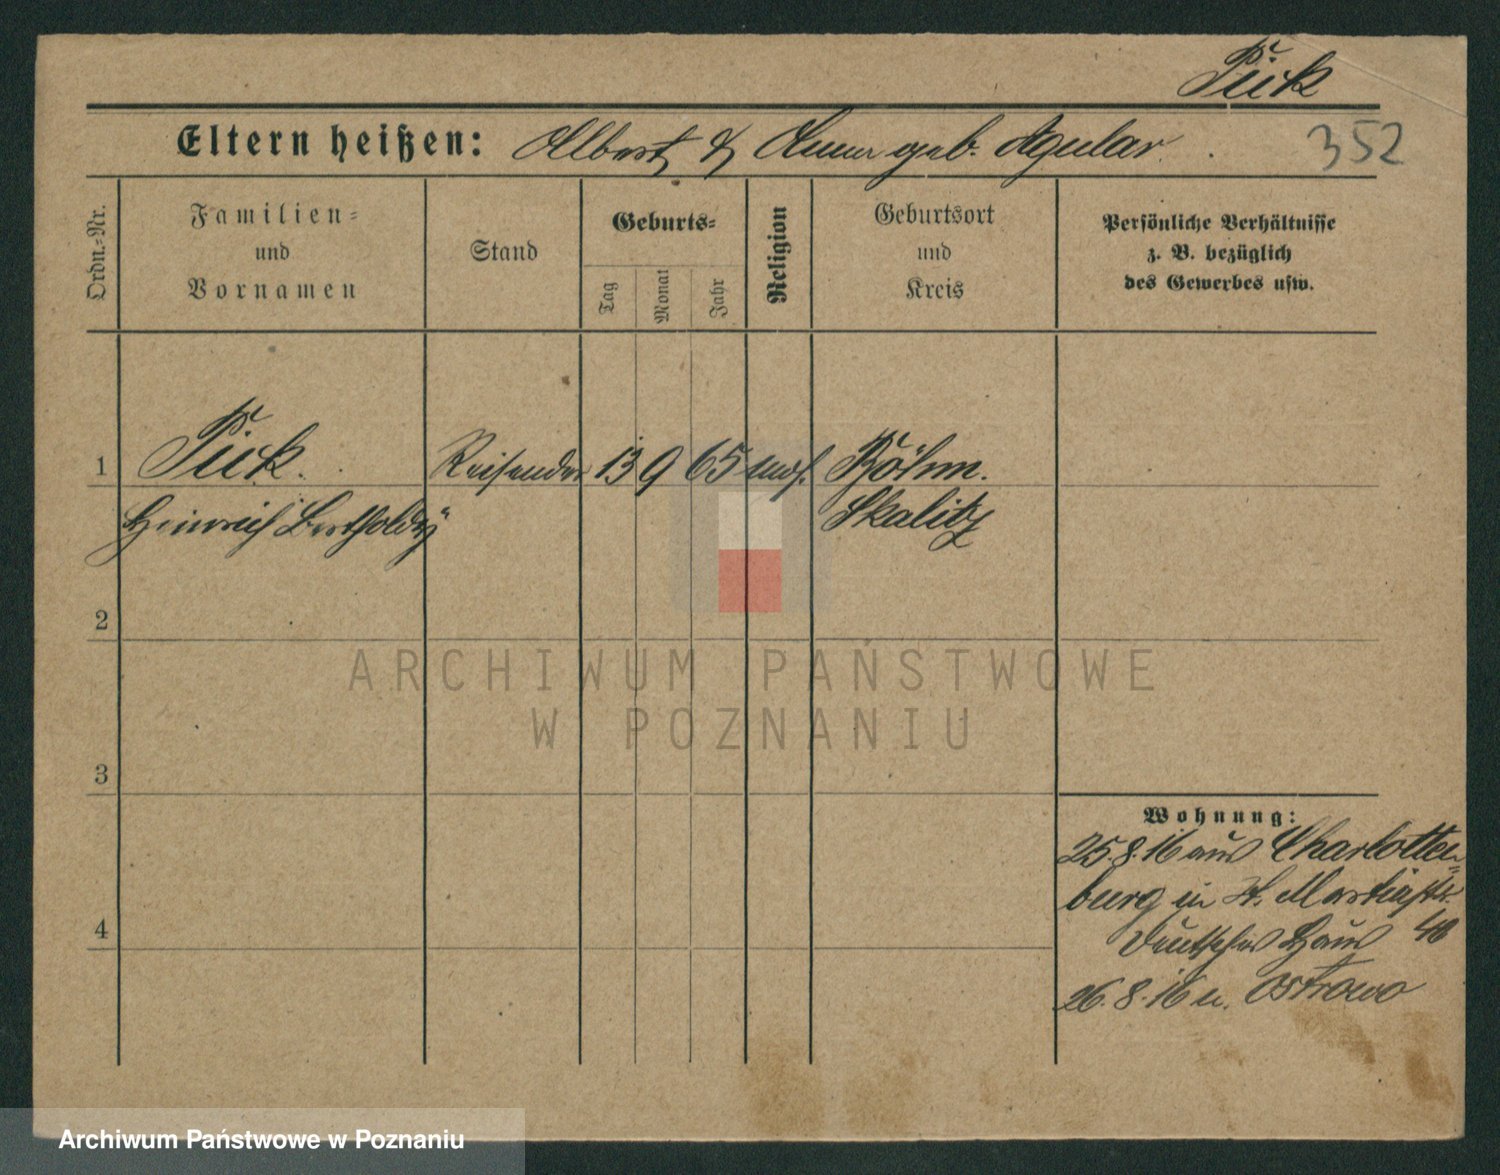 Pick
Eltern heißen: Albert & Anna geb. Agular.
352
Ordn.-Nr.
Familien-
und
Vornamen
Stand
Geburts-
Tag
Monat
Jahr
Religion
Geburtsort
und
Kreis
Persönliche Verhältnisse
z. B. bezüglich
des Gewerbes usw.
1 Pick. Reisender 13 9 65 mos. Böhm.
Heinrich Berthold Skalitz
2
3
4
ARCHIWUM PAŃSTWOWE
W POZNANIU
Wohnung:
25.8.16 aus Charlotten-
burg in St. Martinstr.
Deutsches Haus 40
26.8.16 n. Ostrowo
Archiwum Państwowe w Poznaniu